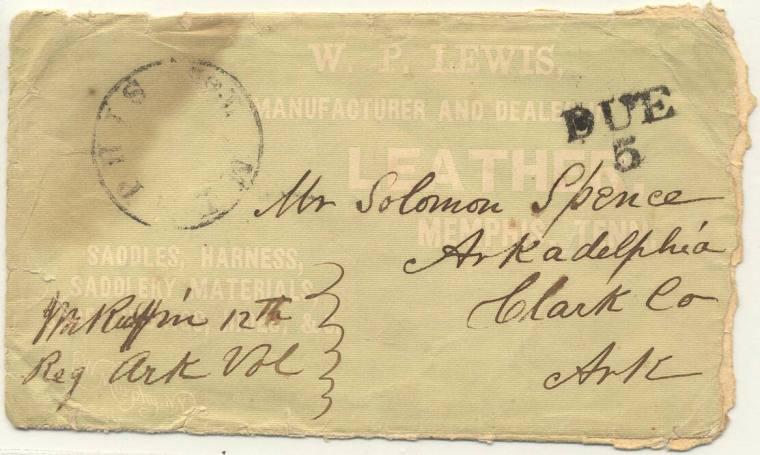 W. P. LEWIS,
MANUFACTURER AND DEALER
LEATHER
MEMPHIS, TENN
SADDLES, HARNESS,
SADDLERY MATERIALS,
DUE
5
Mr Solomon Spence
Arkadelphia
Clark Co
Ark
Ruffin 12th
Reg Ark Vol